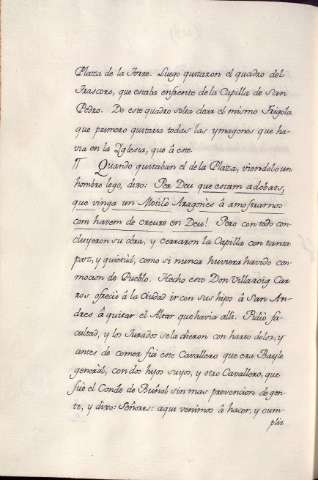 Plaza de la Torre. Luego quitaron el quadro del
Frascoro, que estaba enfrente de la Capilla de San
Pedro. De este quadro solia decir el mismo Frigola
que primero quitaria todas las ymagenes que ha-
via en la Yglesia, que à este.
¶ Quando quitaban el de la Plaza, viendolo un
hombre lego, dixo: Per Deu que estam adobats,
que vinga un Motiló Aragonés à amostrarnos
com havem de creure en Deu! Pero con todo con-
cluyeron su obra, y cerraron la Capilla con tanta
paz, y quietud, como si nunca huviera havido con-
mocion de Pueblo. Hecho esto Don Villarrig Car-
ros ofreció à la Ciudad ir con sus hijos à San An-
dres à quitar el Altar que havia alli. Pidió fa-
cultad, y los Jurados se la dieron con harto dolor, y
antes de comer fué este Cavallero que era Bayle
general, con dos hijos suyos, y otro Cavallero, que
fué el Conde de Buñol sin mas prevencion de gen-
te, y dixo: Señores: aqui venimos à hacer, y cum-
plir